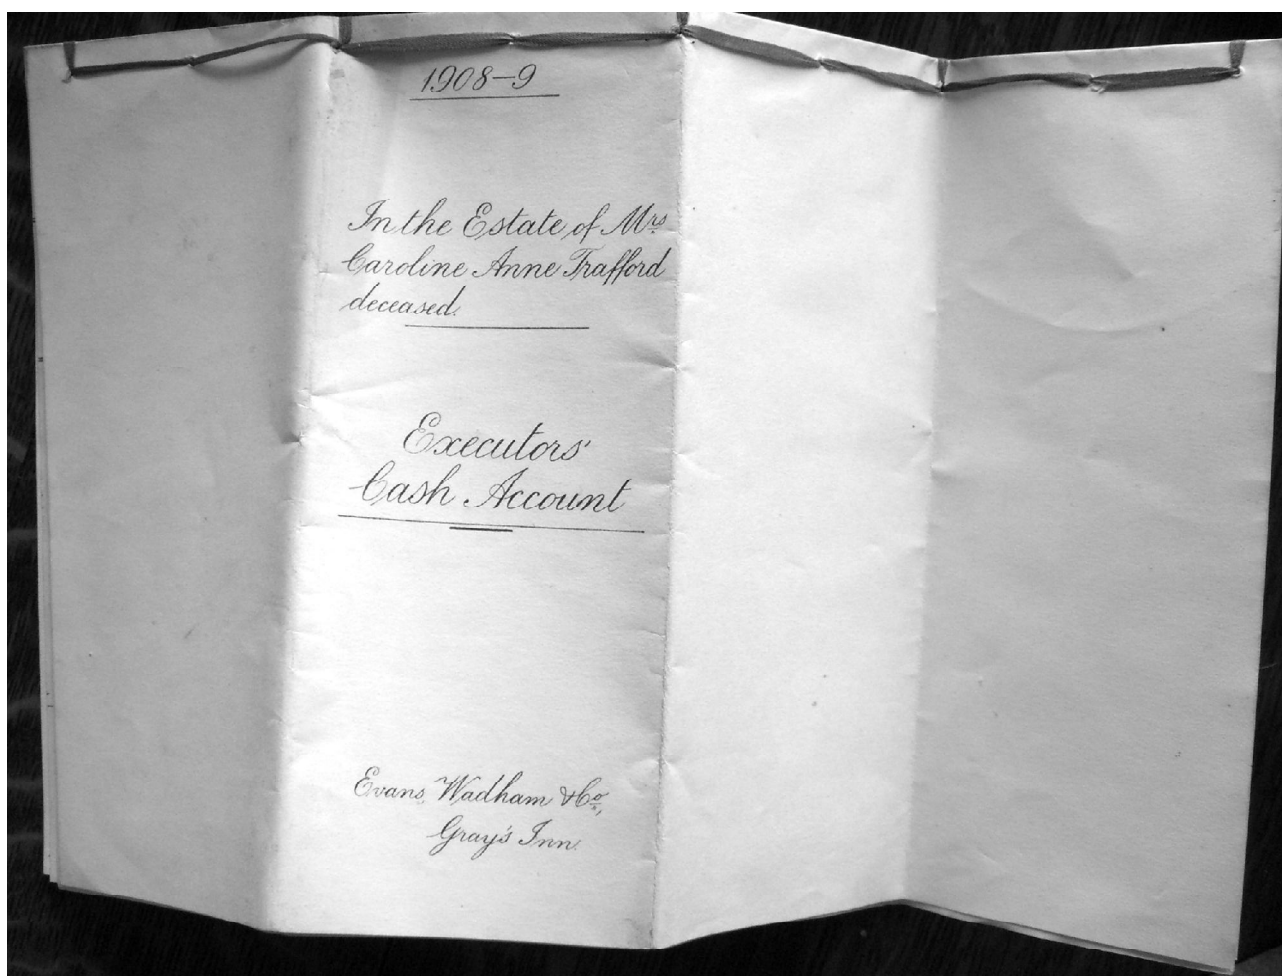 1908-9
In the Estate of Mrs
Caroline Anne Trafford
deceased.
Executors'
Cash Account
Evans, Wadham & Co.,
Gray's Inn.